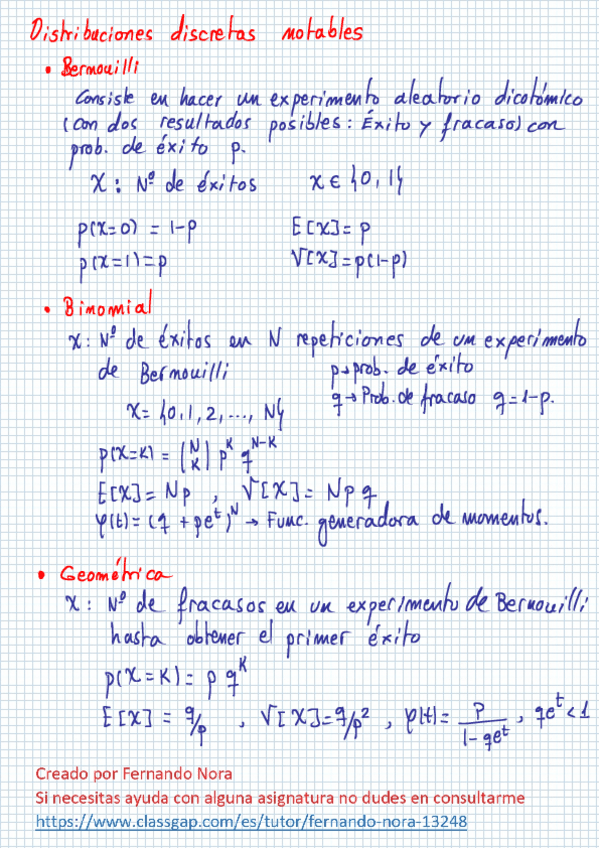 Distribuciones discretas notables
• Bernouilli
Consiste en hacer un experimento aleatorio dicotómico
(con dos resultados posibles: Éxito y fracaso) con
prob. de éxito p.
X: Nº de éxitos x ∈ {0,1}
p(X=0) = 1-p E[X] = p
p(X=1) = p V[X] = p(1-p)
• Binomial
X: Nº de éxitos en N repeticiones de un experimento
de Bernouilli p → prob. de éxito
q → Prob. de fracaso q = 1-p.
X = {0, 1, 2, ..., N}
p(X=K) = (N K) p^K q^(N-K)
E[X] = Np , V[X] = Npq
φ(t) = (q + pe^t)^N → Func. generadora de momentos.
• Geométrica
X: Nº de fracasos en un experimento de Bernouilli
hasta obtener el primer éxito
p(X=K) = p q^K
E[X] = q/p , V[X] = q/p² , φ(t) = p/(1-qe^t) , qe^t < 1
Creado por Fernando Nora
Si necesitas ayuda con alguna asignatura no dudes en consultarme
https://www.classgap.com/es/tutor/fernando-nora-13248